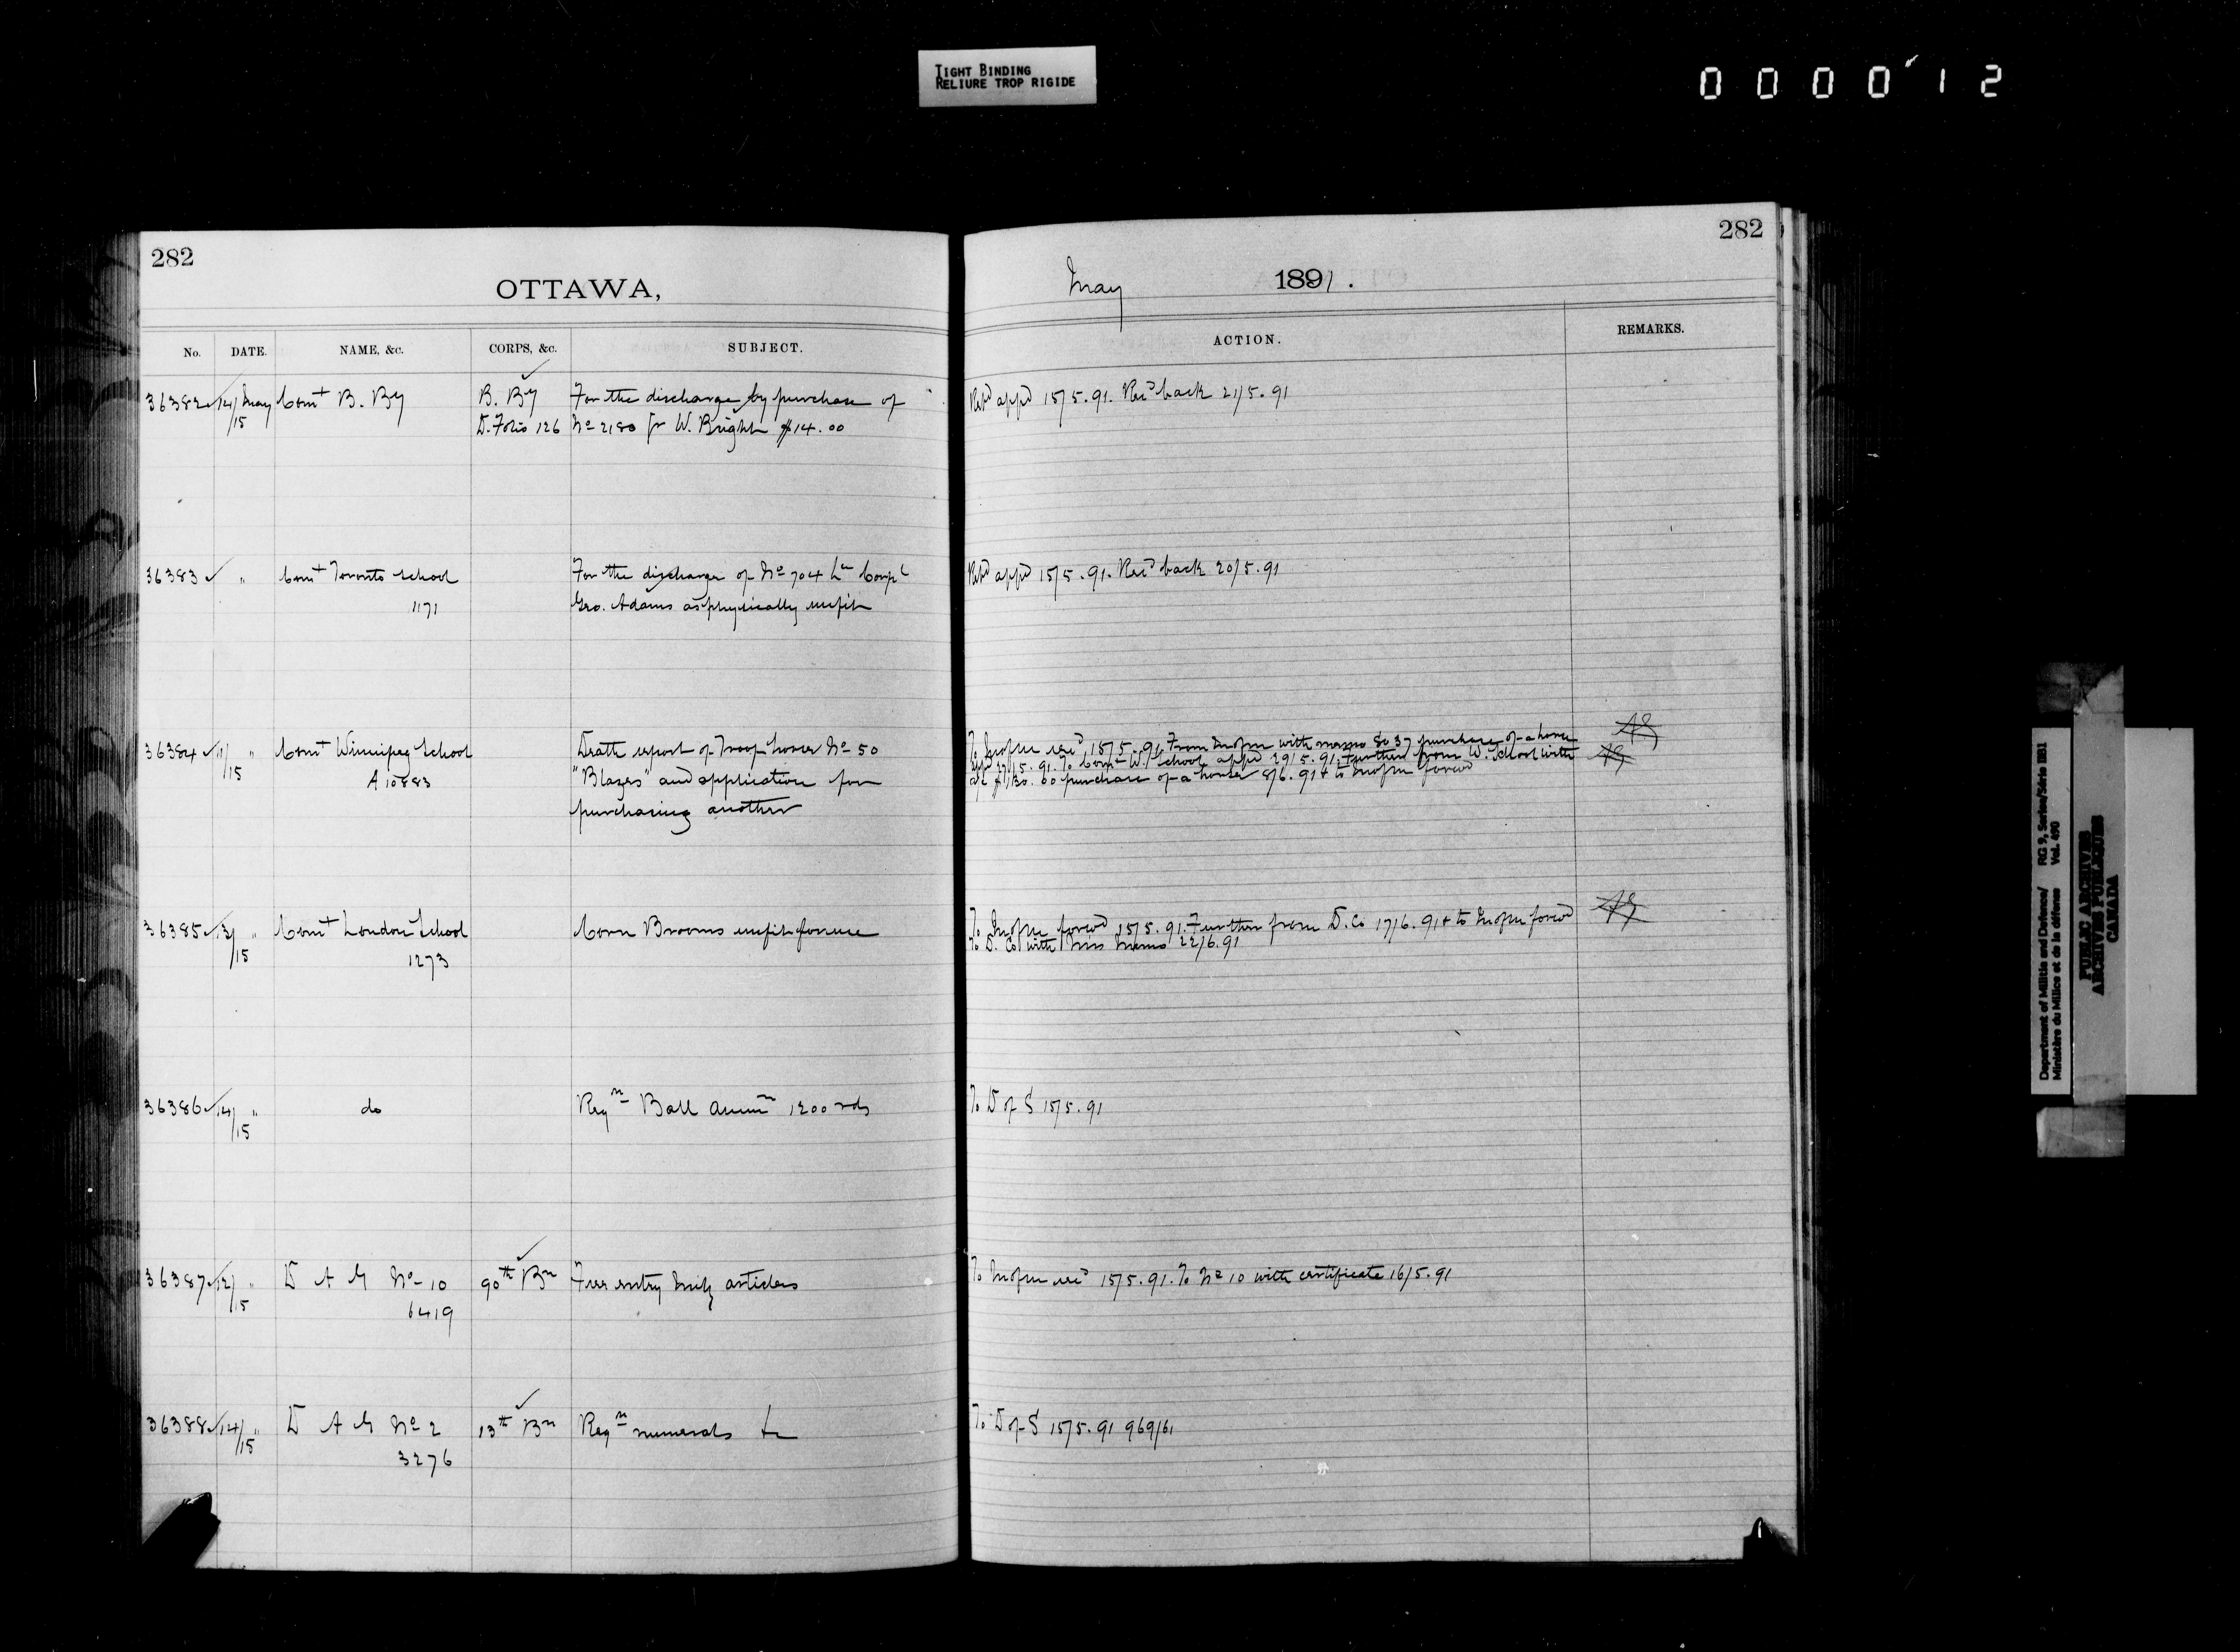 TIGHT BINDING
RELIURE TROP RIGIDE
000012
282
OTTAWA,
No. DATE. NAME, &c. CORPS, &c. SUBJECT.
36382 14/ May Comt B. By B. By For the discharge by purchase of
/15 D. Folio 126 No 2180 Gr W. Bright $14.00
36383 " Comt Toronto School For the discharge of No 704 Ln Corpl
1171 Geo. Adams as physically unfit
36384 11/ " Comt Winnipeg School Death report of Troop horse No 50
/15 A 10883 "Blazes" and application for
purchasing another
36385 13/ " Comt London School Corn Brooms unfit for use
/15 1273
36386 14/ " do Reqn Ball Ammn 1200 rds
/15
36387 12/ " D A G No 10 90th Bn Free entry Mily articles
/15 6419
36388 14/ " D A G No 2 13th Bn Reqn numerals &c
/15 3276
282
May 1891.
ACTION. REMARKS.
Retd appd 15/5.91. Recd back 21/5.91
Retd appd 15/5.91. Recd back 20/5.91
15/5.91. From with memo 8037 purchase of a horse
appd 27/5.91. To Comt W. School appd 29/5.91. Further from W. School with
a/c $130.00 purchase of a horse 8/6.91 & to forwd
To forwd 15/5.91. Further from D. Co 17/6.91 & to forwd
To D. Co with Mins Memo 22/6.91
To D of S 15/5.91
To 15/5.91. To No 10 with certificate 16/5.91
To D of S 15/5.91 969/61
Department of Militia and Defence/ RG 9, Series/Série IIB1
Ministère du Milice et de la défense Vol. 490
PUBLIC ARCHIVES
ARCHIVES PUBLIQUES
CANADA